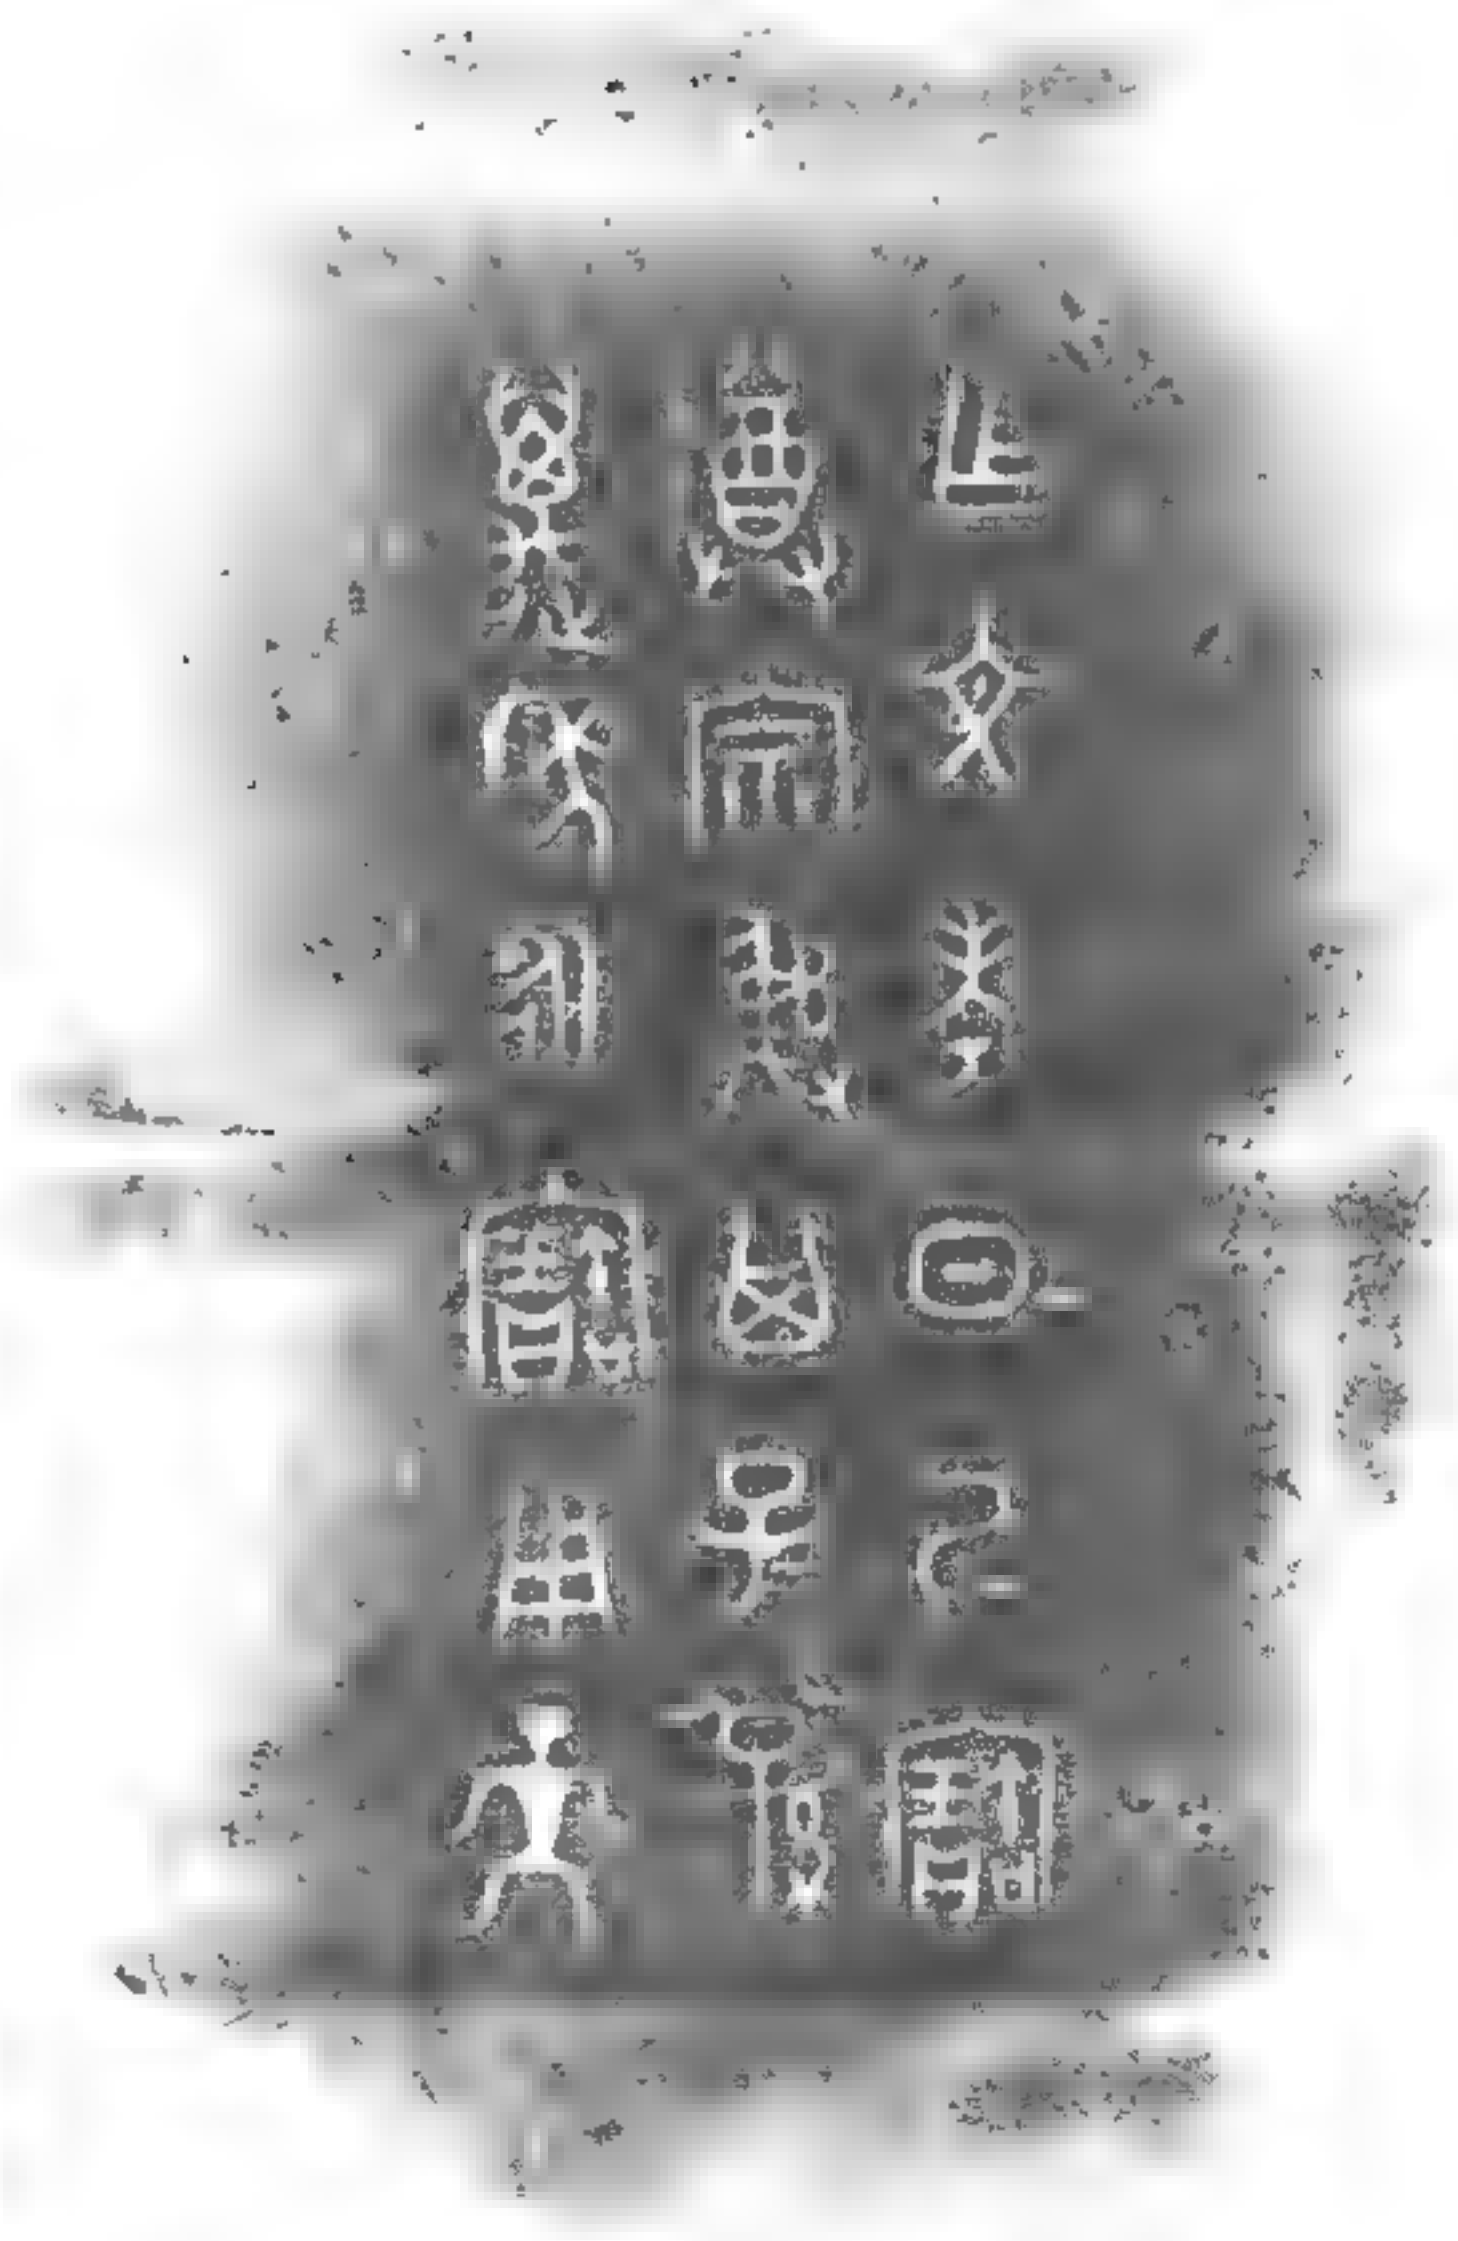 乍文考日己寶
尊宗彝其子孫
萬年永寶用天